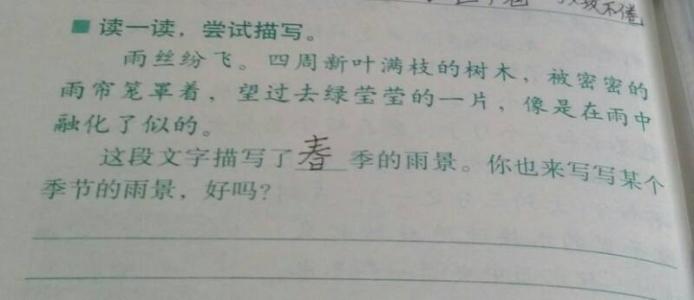 教不倦
■ 读一读，尝试描写。
雨丝纷飞。四周新叶满枝的树木，被密密的
雨帘笼罩着，望过去绿莹莹的一片，像是在雨中
融化了似的。
这段文字描写了春季的雨景。你也来写写某个
季节的雨景，好吗？